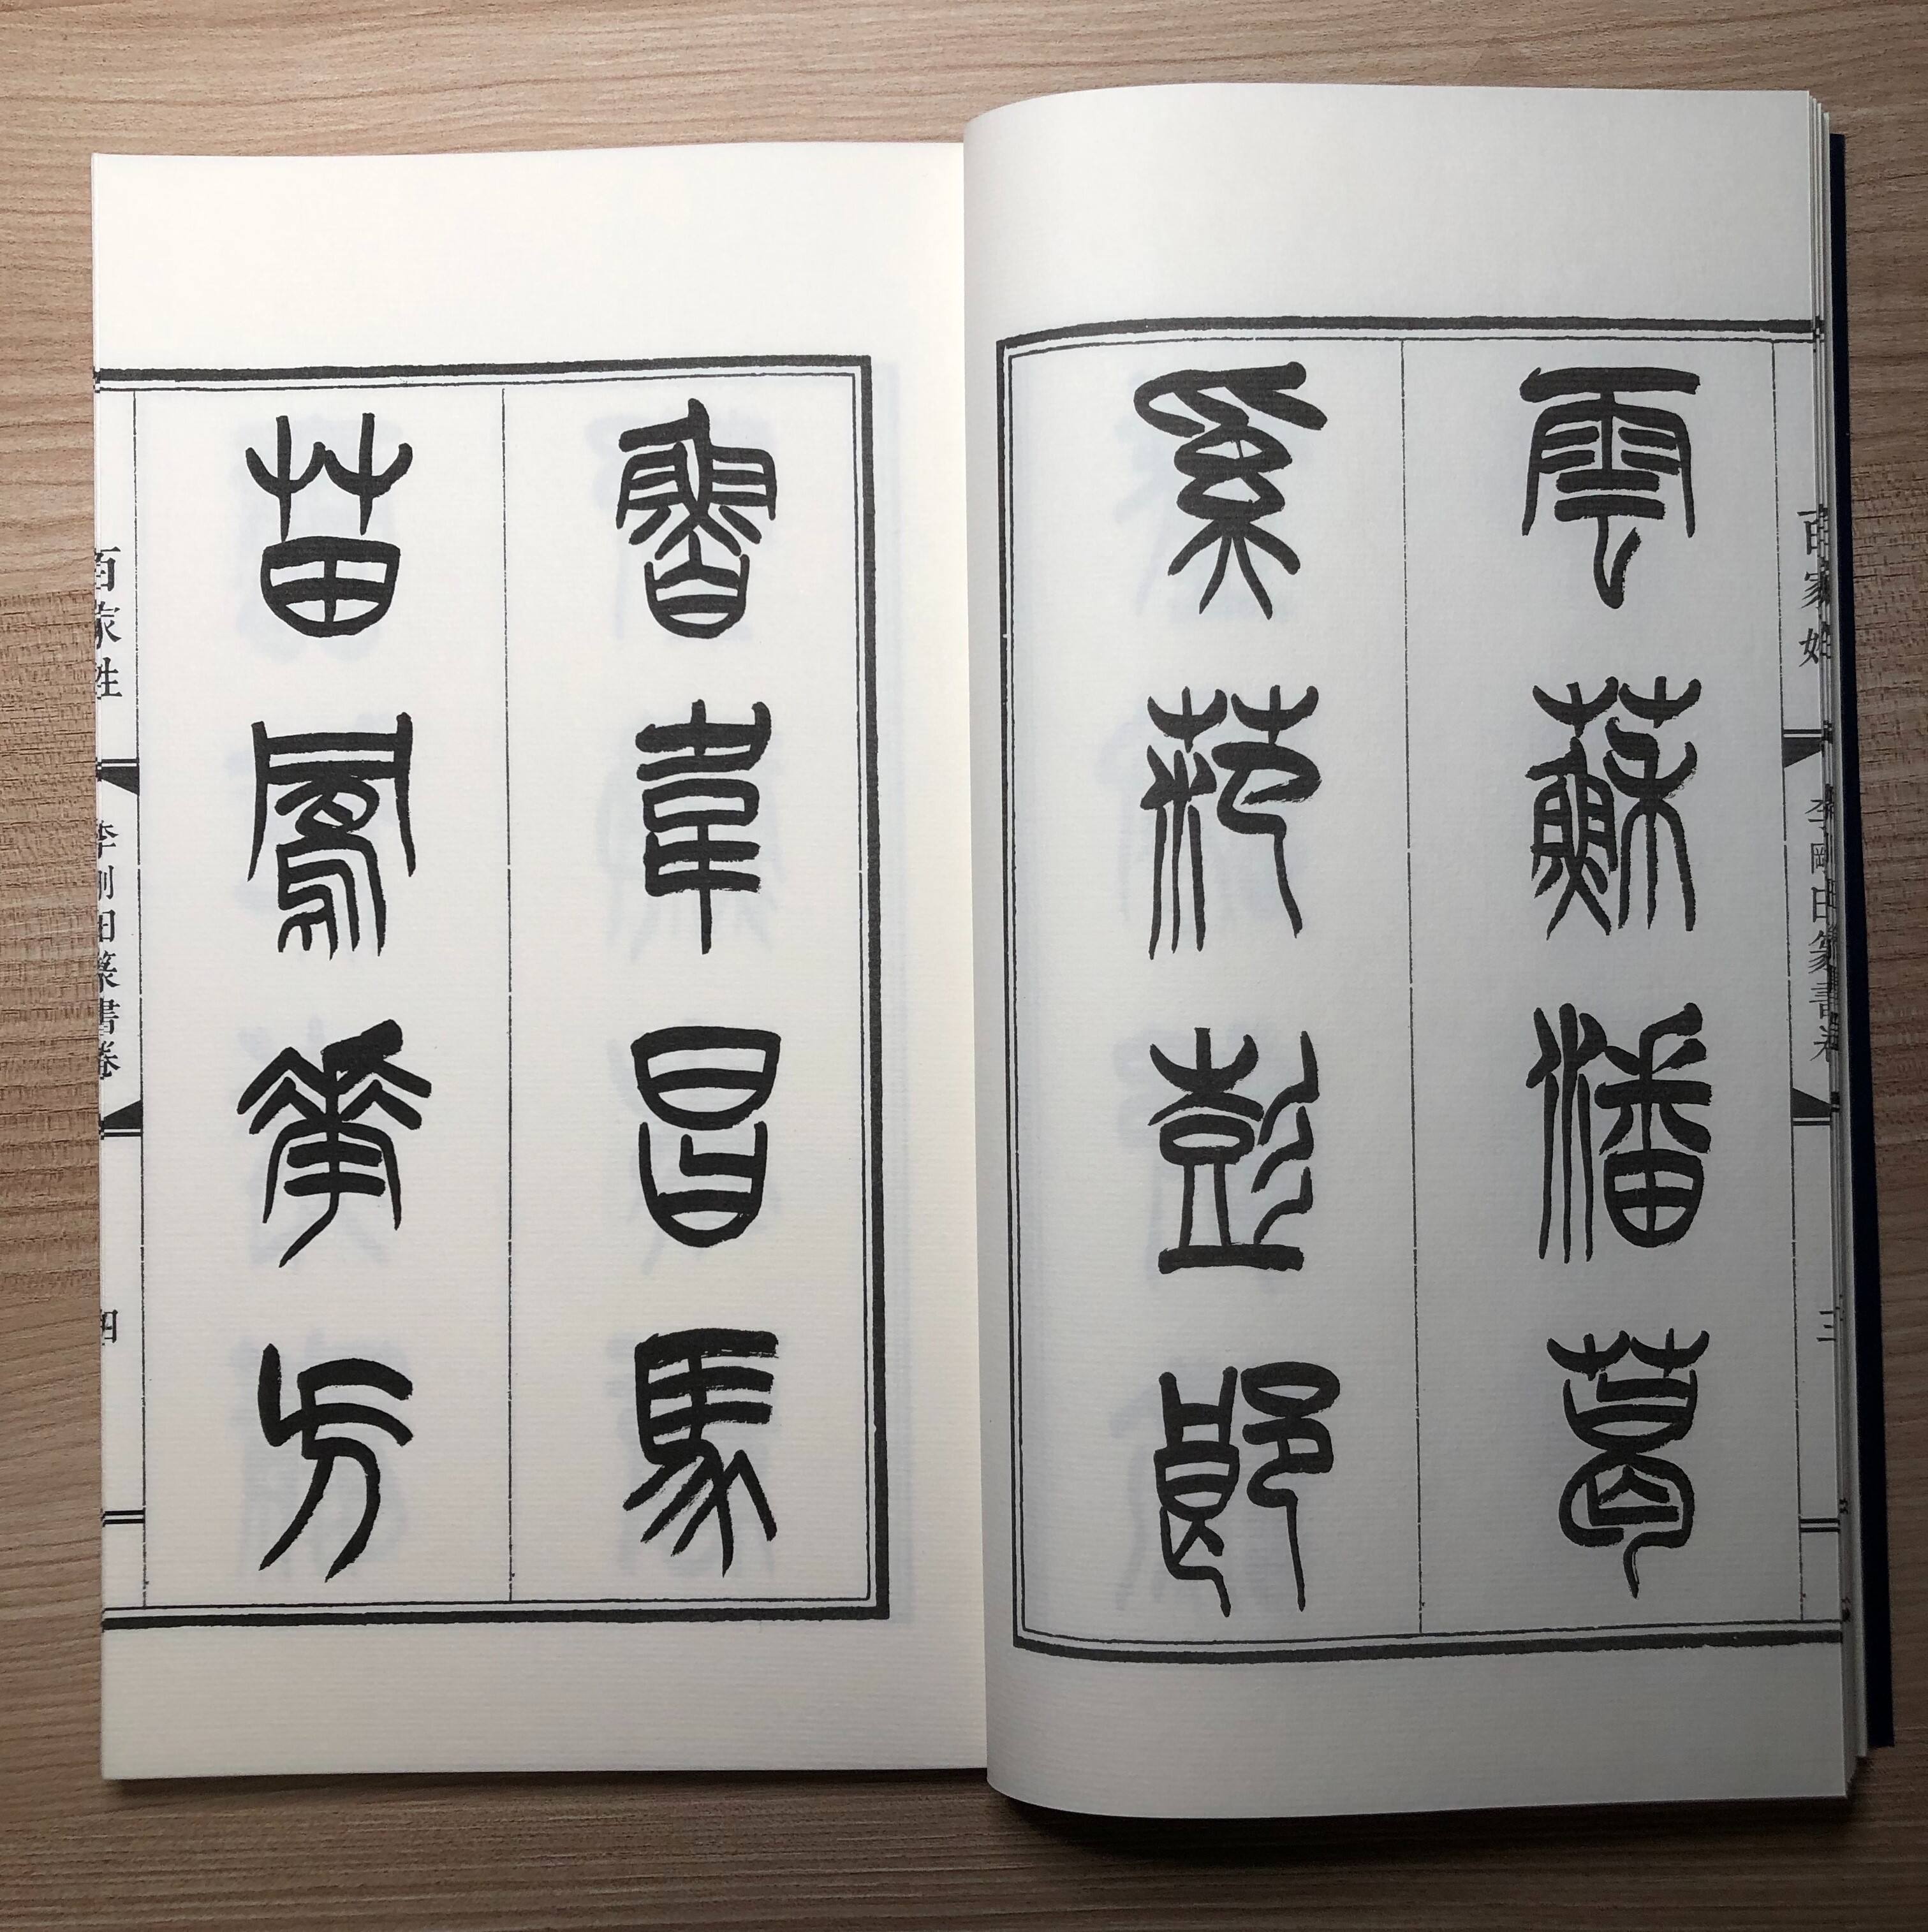 雲蘇潘葛
奚范彭郎
百家姓
李剛田篆書卷
三
魯韋昌馬
苗鳳花方
百家姓
李剛田篆書卷
四